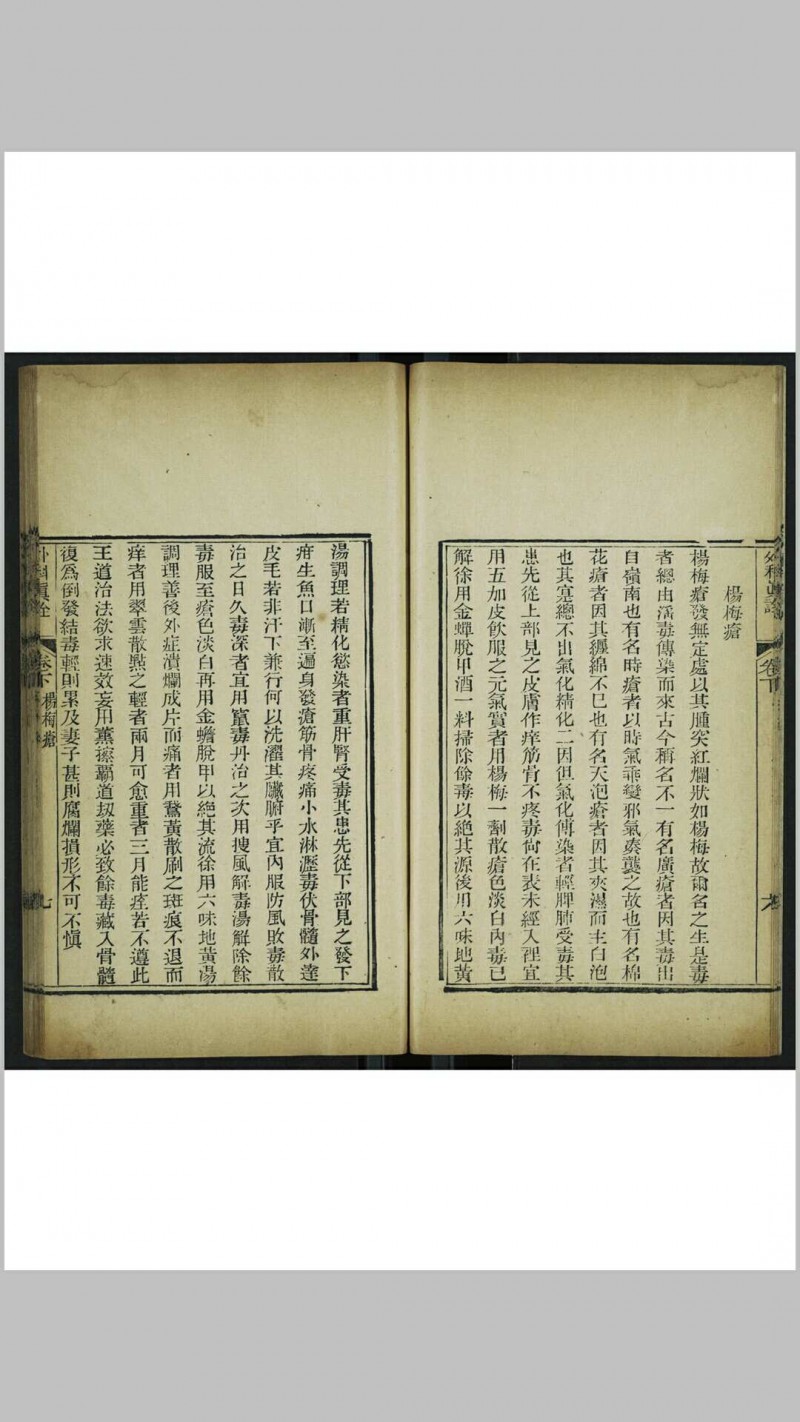 外科真詮
卷下
九
楊梅瘡
楊梅瘡發無定處以其腫突紅爛狀如楊梅故爾名之生是毒
者總由淫毒傳染而來古今稱名不一有名廣瘡者因其毒出
自嶺南也有名時瘡者以時氣乖變邪氣奏襲之故也有名棉
花瘡者因其纏綿不已也有名天泡瘡者因其夾濕而生白泡
也其寔總不出氣化精化二因但氣化傳染者輕脾肺受毒其
患先從上部見之皮膚作痒筋骨不疼毒尙在表未經入裡宜
用五加皮飲服之元氣實者用楊梅一劑散瘡色淡白內毒已
解徐用金蟬脫甲酒一料掃除餘毒以絶其源後用六味地黃
湯調理若精化慾染者重肝腎受毒其患先從下部見之發下
疳生魚口漸至遍身發瘡筋骨疼痛小水淋瀝毒伏骨髓外達
皮毛若非汗下兼行何以洗濯其臟腑乎宜內服防風敗毒散
治之日久毒深者宜用竄毒丹治之次用搜風解毒湯解除餘
毒服至瘡色淡白再用金蟾脫甲以絶其流徐用六味地黃湯
調理善後外症潰爛成片而痛者用鵞黃散刷之斑痕不退而
痒者用翠雲散點之輕者兩月可愈重者三月能痊若不遵此
王道治法欲求速效妄用薰擦覇道刼藥必致餘毒藏入骨髓
復爲倒發結毒輕則累及妻子甚則腐爛損形不可不愼
外科眞詮
卷下
楊梅瘡
九